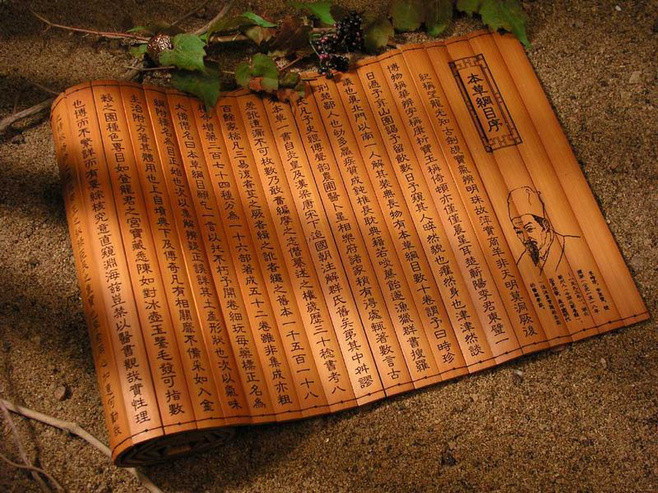 本草綱目序
紀稱望龍光知古劍覘寶氣辨明珠故萍實商羊非天明莫洞厥後
博物稱華辨字稱康析寶玉稱倚頓亦僅僅晨星耳楚蘄陽李君東璧一
日過予弇山園謁予留飲數日予窺其人睟然貌也癯然身也津津然談
議也真北斗以南一人解其裝無長物有本草綱目數十卷謂予曰時珍
荊楚鄙人也幼多羸疾質成鈍椎長耽典籍若啖蔗飴遂漁獵群書搜羅
百氏凡子史經傳聲韻農圃醫卜星相樂府諸家稍有得處輒著數言古
有本草一書自炎皇及漢梁唐宋下迨國朝注解群氏舊矣第其中舛謬
差訛遺漏不可枚數乃敢奮編摩之志僭纂述之權歲歷三十稔書考八
百餘家稿凡三易復者芟之厥者緝之訛者繩之舊本一千五百一十八
種今增藥三百七十四種分為一十六部著成五十二卷雖非集成亦粗
大備僭名曰本草綱目願乞一言以托不朽予開卷細玩每藥標正名為
綱附釋名為目正始也次以集解辨疑正誤詳其土產形狀也次以氣味
主治附方著其體用也上自墳典下及傳奇凡有相關靡不備采如入金
谷之園種色奪目如登龍君之宮寶藏悉陳如對冰壺玉鑒毛髮可指數
也博而不繁詳而有要綜核究竟直窺淵海茲豈禁以醫書覯哉實性理